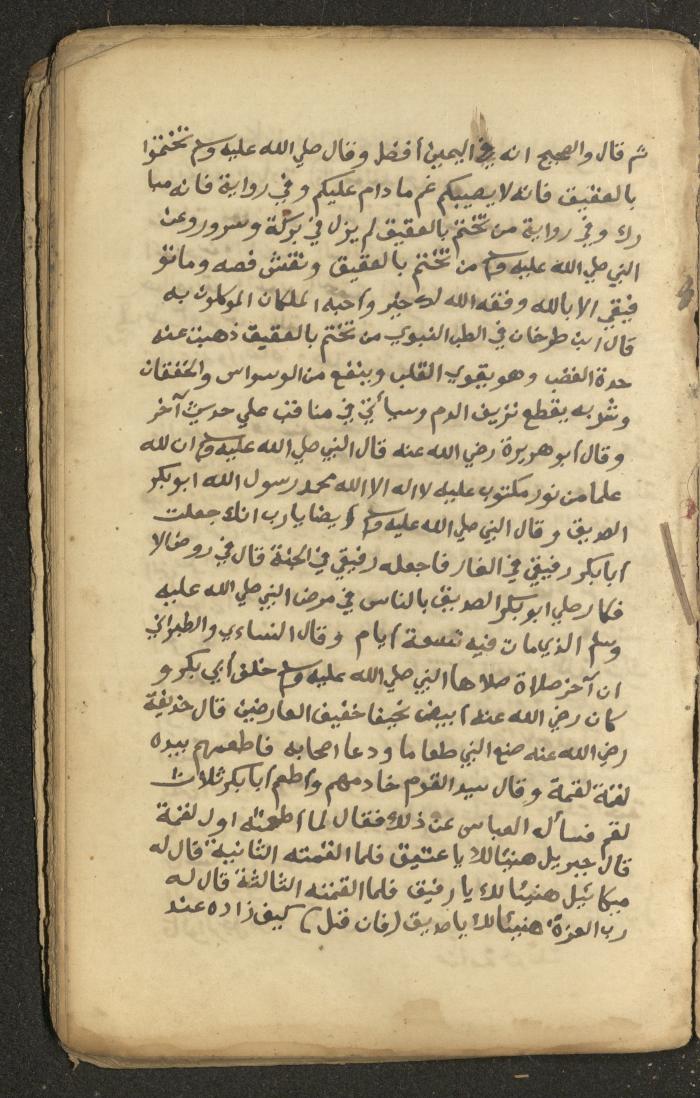 ثم قال والصحيح انه في اليمين أفضل وقال صلي الله عليه وسلم تختموا
بالعقيق فانه لا يصيبكم غم ما دام عليكم وفي رواية فانه مبا
رك وفي رواية من تختم بالعقيق لم يزل في بركة وسرور وعن
النبي صلي الله عليه وسلم من تختم بالعقيق ونقش فصه وما تو
فيقي الا بالله وفقه الله لكل خير وأحبه الملكان الموكلون به
قال ابن طرخان في الطب النبوي من تختم بالعقيق ذهبت عنه
حدة الغضب وهو يقوي القلب وينفع من الوسواس والخفقان
وشربه يقطع نزيف الدم وسيأتي في مناقب علي حديث آخر
وقال أبو هريرة رضي الله عنه قال النبي صلي الله عليه وسلم ان لله
علما من نور مكتوب عليه لا اله الا الله محمد رسول الله ابو بكر
الصديق وقال النبي صلي الله عليه وسلم أيضا يا رب انك جعلت
أبا بكر رفيقي في الغار فاجعله رفيقي في الجنة قال في روض الا
فكار صلي ابو بكر الصديق بالناس في مرض النبي صلي الله عليه
وسلم الذي مات فيه تسعة أيام وقال النساءي والطبراني
ان آخر صلاة صلاها النبي صلي الله عليه وسلم خلف أبي بكر و
كان رضي الله عنه أبيض نحيفا خفيف العارضين قال حذيفة
رضي الله عنه صنع النبي طعاما ودعا اصحابه فاطعمهم بيده
لقمة لقمة وقال سيد القوم خادمهم وأطعم أبا بكر ثلاث
لقم فسأله العباس عن ذلك فقال لما أطعمته اول لقمة
قال جبريل هنيئا لك يا عتيق فلما القمته الثانية قال له
ميكائيل هنيئا لك يا رفيق فلما القمته الثالثة قال له
رب العزة هنيئا لك يا صديق (فان قيل) كيف زاده عند